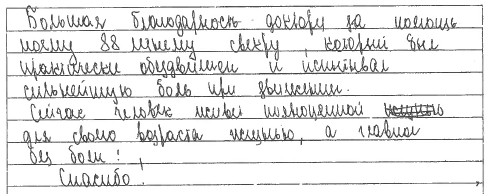 Большая благодарность доктору за помощь
моему 88 летнему свекру, который был
практически обездвижен и испытывал
сильнейшую боль при движении.
Сейчас человек живёт полноценной
для своего возраста жизнью, а главное
без боли!
Спасибо!